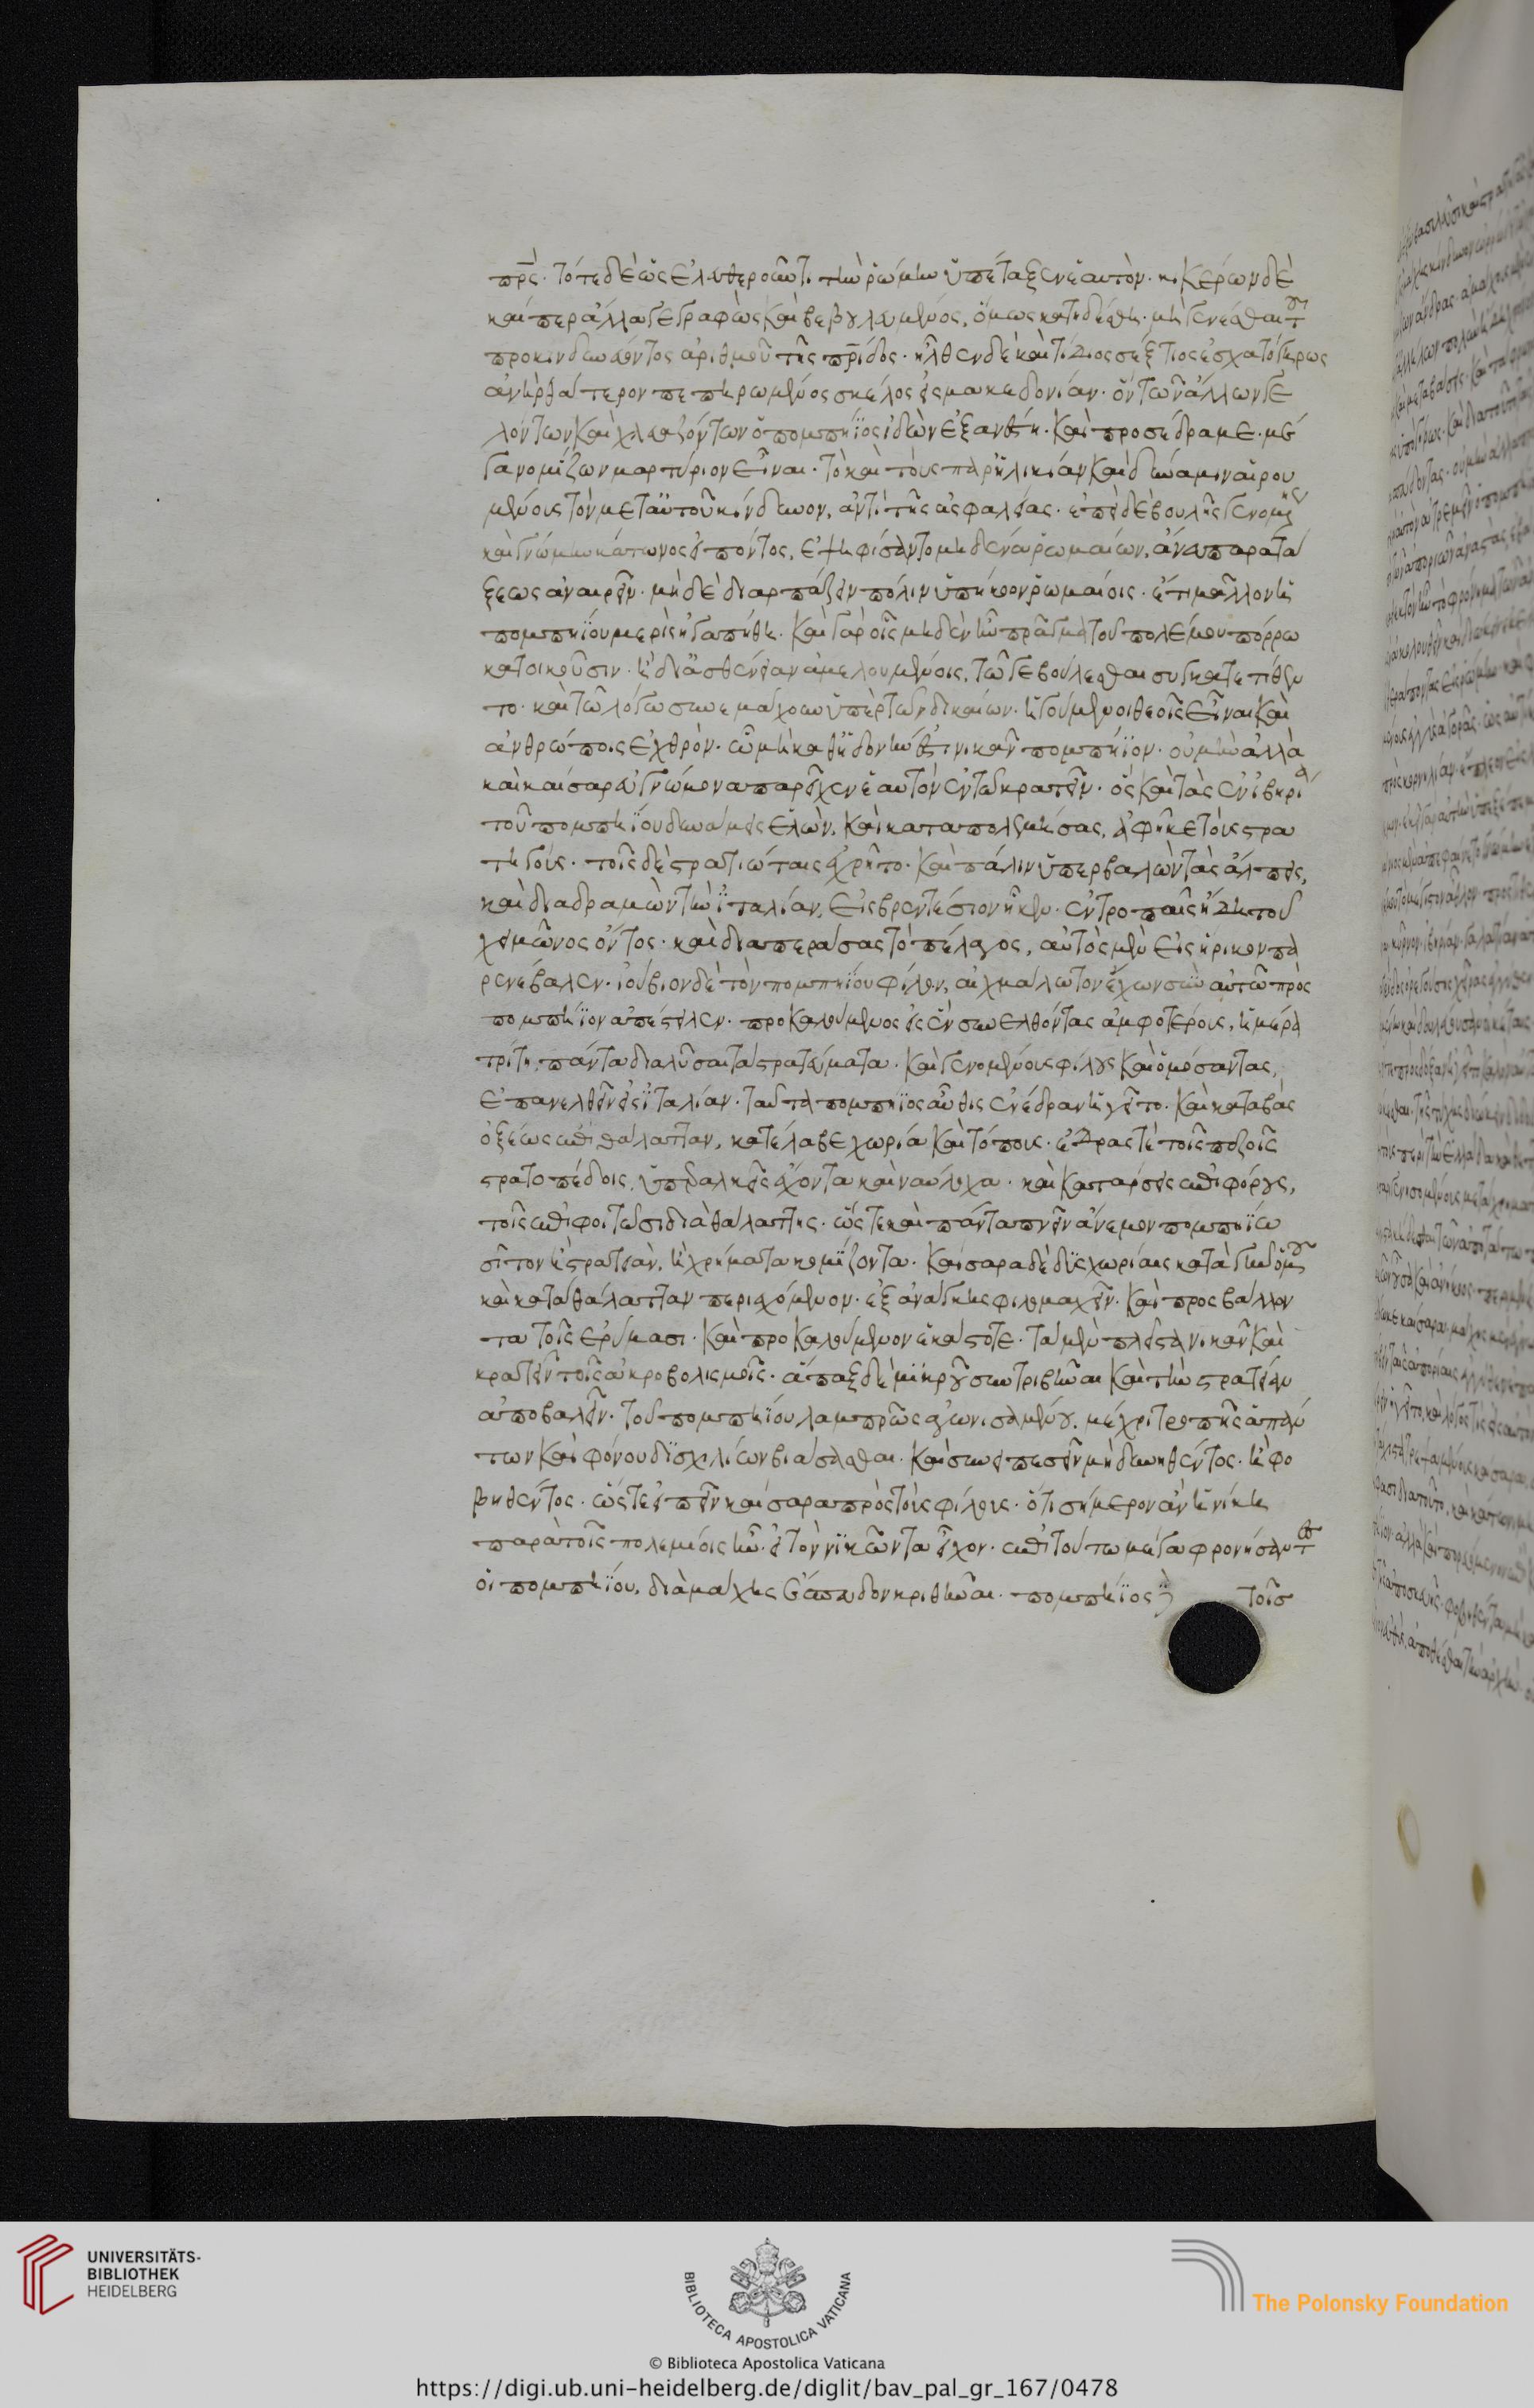 πρς. τότε δὲ ὡς ἐλευθεροῦντι τὴν ῥώμην ὑπέταξεν ἑαυτὸν. κικέρων δὲ
καίπερ ἄλλα γεγραφὼς καὶ βεβουλευμένος, ὅμως κατηδέσθη. μὴ γενέσθαι τοῦ
προκινδυνεύοντος ἀριθμοῦ τῆς πρίδος. ἦλθεν δὲ καὶ τίδιος σέξτιος ἐσχατόγηρως
ἀνὴρ θάτερον πεπηρωμένος σκέλος εἰς μακεδονίαν. ὃν τῶν ἄλλων γε
λόντων καὶ χλευαζόντων ὁ πομπήϊος ἰδὼν ἐξανέστη. καὶ προσέδραμε. μέ
γα νομίζων μαρτύριον εἶναι. τὸ καὶ τοὺς παρ ἡλικίαν καὶ δύναμιν αἱρου
μένους τὸν μετ αὐτοῦ κίνδυνον, ἀντὶ τῆς ἀσφαλείας. ἐπεὶ δὲ βουλῆς γενομένης
καὶ γνώμην κάτωνος εἰπόντος, ἐψηφίσαντο μηδένα ῥωμαίων, ἄνευ παρατά
ξεως ἀναιρεῖν. μηδὲ διαρπάζειν πόλιν ὑπήκοον ῥωμαίοις. ἔτι μᾶλλον ἡ
πομπηΐου μερὶς ἠγαπήθη. καὶ γὰρ οἷς μηδὲν ἦν πρᾶγμα τοῦ πολέμου πόρρω
κατοικοῦσιν. ἢ δι ἀσθένειαν ἀμελουμένοις, τῶ γε βούλεσθαι συγκατετίθεν
το. καὶ τῶ λόγω συνεμάχουν ὑπὲρ τῶν δικαίων. ἡγούμενοι θεοῖς εἶναι καὶ
ἀνθρώποις ἐχθρὸν. ὧ μὴ καθ ἡδονήν ἐστι νικᾶν πομπήϊον. οὐ μὴν ἀλλὰ
καὶ καίσαρ εὐγνώμονα παρέσχεν ἑαυτὸν ἐν τῶ κρατεῖν. ὃς καὶ τὰς ἐν ἰβηρία
τοῦ πομπηΐου δυνάμεις ἑλὼν, καὶ καταπολεμήσας, ἀφῆκε τοὺς στρα
τηγούς. τοῖς δὲ στρατιώταις ἐχρῆτο. καὶ πάλιν ὑπερβαλὼν τὰς ἄλπεις,
καὶ διαδραμὼν τὴν ἰταλίαν, εἰς βρεντέσιον ἧκεν. ἐν τροπαῖς ἤδη τοῦ
χειμῶνος ὄντος. καὶ διαπεράσας τὸ πέλαγος, αὐτὸς μὲν εἰς ὤρικον πα
ρενέβαλεν. ἰούβιον δὲ τὸν πομπηΐου φίλον, αἰχμάλωτον ἔχων σὺν αὐτῶ πρὸς
πομπήϊον ἀπέστειλεν. προκαλούμενος εἰς ἓν συνελθόντας ἀμφοτέρους, ἡμέρα
τρίτη, πάντα διαλῦσαι τὰ στρατεύματα. καὶ γενομένους φίλους καὶ ὀμόσαντας,
ἐπανελθεῖν εἰς ἰταλίαν. ταῦτα πομπήϊος αὖθις ἐνέδραν ἡγεῖτο. καὶ καταβὰς
ὀξέως ἐπὶ θάλατταν, κατέλαβε χωρία καὶ τόπους. ἕδρας τὲ τοῖς πεζοῖς
στρατοπέδοις, ὑπεραλκεῖς ἔχοντα καὶ ναύλοχα. καὶ κατάρσεις ἐπιφόρους,
τοῖς ἐπιφοιτῶσι διὰ θαλάττης. ὥστε καὶ πάντα πνεῖν ἄνεμον πομπηΐω
σῖτον ἢ στρατιὰν, ἢ χρήματα κομίζοντα. καίσαρα δὲ δυσχωρίαις κατὰ γῆν ὁμοῦ
καὶ κατὰ θάλατταν περιεχόμενον. ἐξ ἀνάγκης φιλομαχεῖν. καὶ προσβάλλον
τα τοῖς ἐρύμασι. καὶ προκαλούμενον ἑκάστοτε. τὰ μὲν πλεῖστα νικᾶν καὶ
κρατεῖν τοῖς ἀκροβολισμοῖς. ἅπαξ δὲ μικροῦ συντριβῆναι καὶ τὴν στρατιὰν
ἀποβαλεῖν. τοῦ πομπηΐου λαμπρῶς ἀγωνισαμένου. μέχρι τροπῆς ἁπάν
των καὶ φόνου δισχιλίων βιάσασθαι. καὶ συνεισπεσεῖν μὴ δυνηθέντος. ἢ φο
βηθέντος. ὥστε εἰπεῖν καίσαρα πρὸς τοὺς φίλους. ὅτι σήμερον ἂν ἡ νίκη
παρὰ τοῖς πολεμίοις ἦν. εἰ τὸν νικῶντα εἶχον. ἐπὶ τούτω μέγα φρονήσαντες
οἱ πομπηΐου, διὰ μάχης ἔσπευδον κριθῆναι. πομπήϊος δὲ τοῖς
UNIVERSITÄTS-
BIBLIOTHEK
HEIDELBERG
BIBLIOTECA APOSTOLICA VATICANA
The Polonsky Foundation
© Biblioteca Apostolica Vaticana
https://digi.ub.uni-heidelberg.de/diglit/bav_pal_gr_167/0478